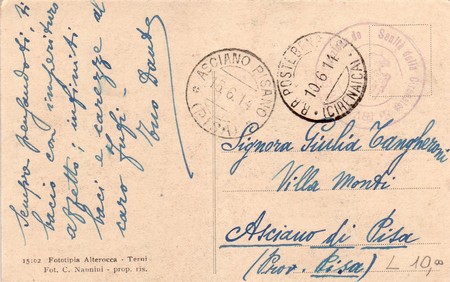 Sempre pensandoti, ti
bacio con imperituro
affetto; infiniti
baci e carezze al
caro
tuo Dante
15102 Fototipia Alterocca - Terni
Fot. C. Nannini - prop. ris.
ASCIANO PISANO
(PISA)
6.14
R.R. POSTE
10.6.14
(CIRENAICA)
Sanità della
Signora Giulia Tangheroni
Villa Monti
Asciano di Pisa
(Prov. Pisa)
L 10,00